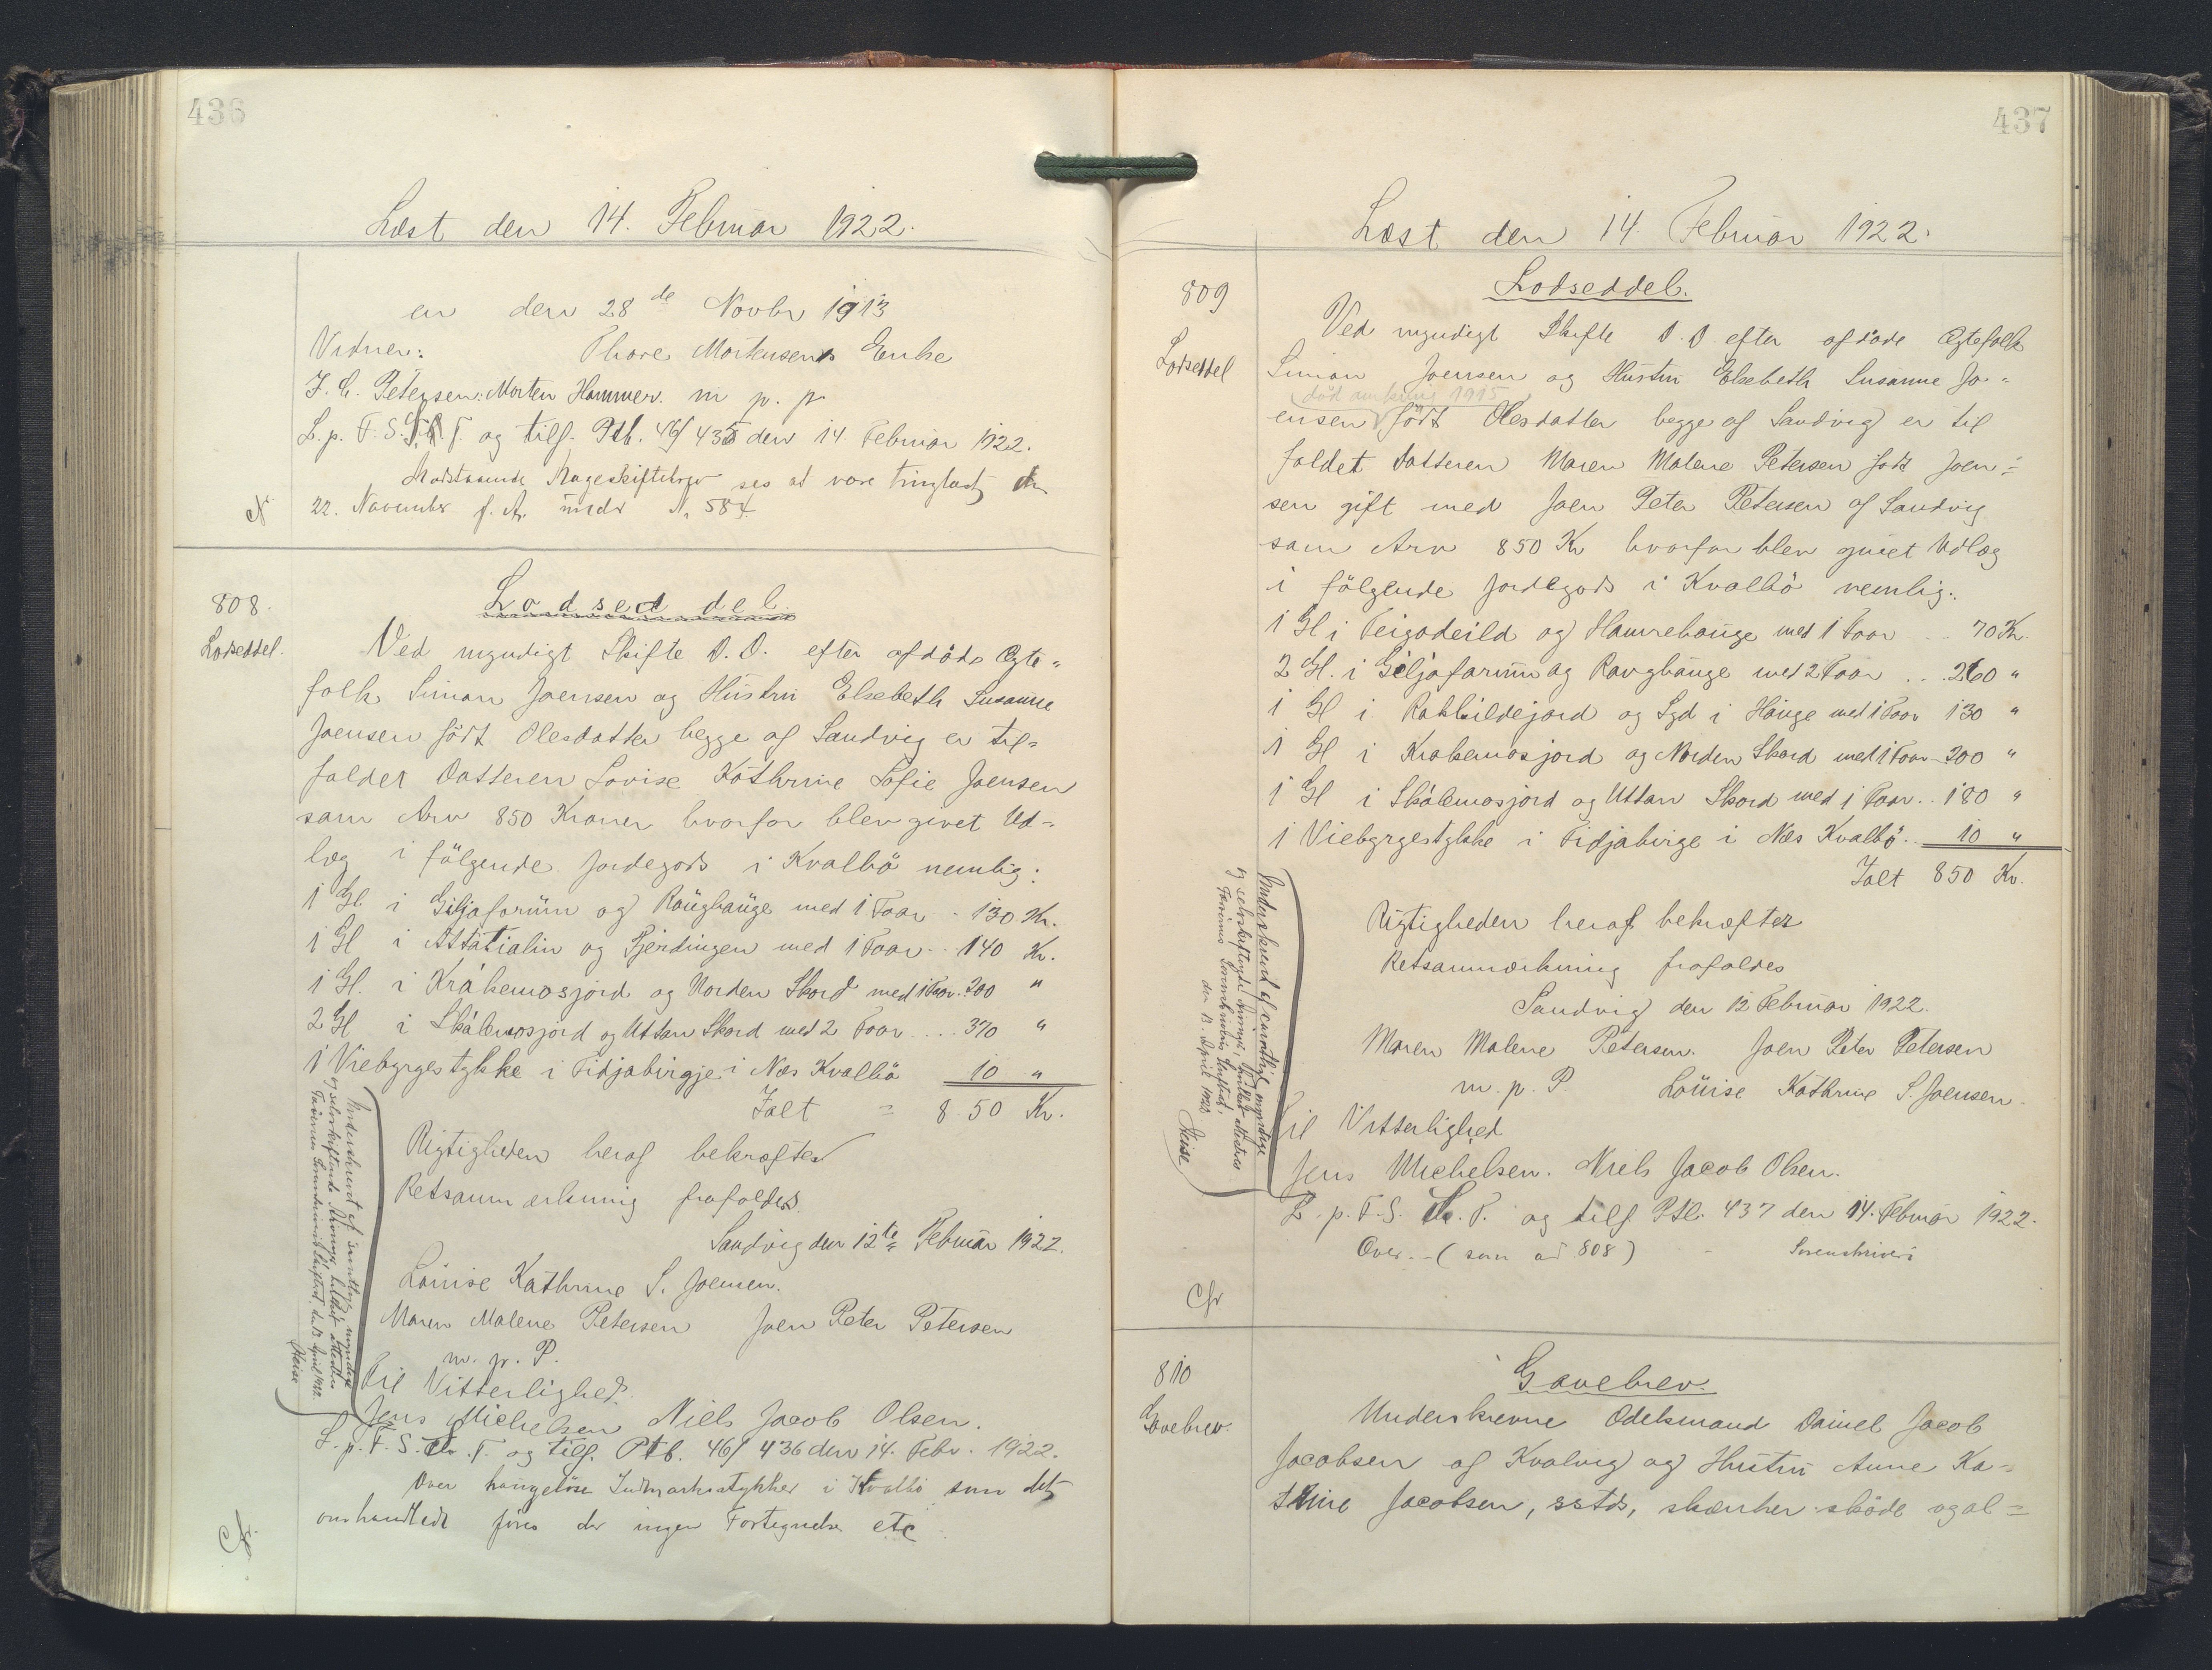 436
Læst den 14. Februar 1922.
er den 28 de Novbr 1913
Vidner: Thore Mortensens Enke
J. C. Petersen. Morten Hammer. m. p. p.
L. p. F. S. T. og tilf. Ptb. 46/435 den 14. Februar 1922.
Modstaaende Mageskiftebrev ses at være tinglæst den
22. November f. A. under N. 584.
808.
Lodseddel.
Lodseddel.
Ved myndigt Skifte D. D. efter afdøde Ægte-
folk Simon Joensen og Hustru Elsebeth Susanne
Joensen født Olesdatter begge af Sandvig er til-
faldet Datteren Lovise Kathrine Sofie Joensen
som Arv 850 Kroner hvorfor blev givet Ud-
læg i følgende Jordegods i Kvalbø nemlig:
1 Gl. i Giljaforum og Raughauge med 1 Foar - 130 Kr.
1 Gl i Attatialin og Fjerdingen med 1 Foar - 140 Kr.
1 Gl. i Krákemosjord og Norden Skord med 1 Foar. 200 "
2 Gl i Skálemosjord og Uttan Skord med 2 Foar .... 370 "
1 Viebyrgestykke i Fidjabirgje i Næs Kvalbø 10 "
Ialt = 850 Kr.
Rigtigheden heraf bekræftes
Retsanmærkning frafaldes.
Sandvig den 12te Februar 1922.
Louise Kathrine S. Joensen.
Maren Malene Petersen Joen Peter Petersen
m. p. P.
Til Vitterlighed.
Jens Michelsen Niels Jacob Olsen.
L. p. F. S. T. og tilf. Ptb. 46/436 den 14. Febr. 1922.
Over haugeløse Indmarksstykker i Kvalbø som det
omhandlede føres der ingen Fortegnelse etc
Underskrevet af samtlige myndige
og selvskiftende Arvinger, hvilket attesteres
Færøernes Sorenskriveri den 13. April 1923.
Heise
437
Læst den 14. Februar 1922.
809
Lodseddel
Lodseddel.
Ved myndigt Skifte D. D. efter afdøde Ægtefolk
Simon Joensen og Hustru Elsebeth Susanne Jo-
(død omkring 1915
ensen født Olesdatter begge af Sandvig er til
faldet Datteren Maren Malene Petersen født Joen-
sen gift med Joen Peter Petersen af Sandvig
som Arv 850 Kr hvorfor blev givet Udlæg
i følgende Jordegods i Kvalbø nemlig:
1 Gl i Teigadeild og Hamrehauge med 1 Foar .. 70 Kr.
2 Gl. i Giljaforum og Raughauge med 2 Foar ... 260 "
1 Gl i Rakkildejord og Sgd i Hauge med 1 Foar 130 "
1 Gl i Krakemosjord og Norden Skord med 1 Foar - 200 "
1 Gl i Skálemosjord og Uttan Skord med 1 Foar .. 180 "
1 Viebyrgestykke i Fidjabirge i Næs Kvalbø. 10 "
Ialt 850 Kr.
Rigtigheden heraf bekræftes
Retsanmærkning frafaldes
Sandvig den 12 Februar 1922.
Maren Malene Petersen. Joen Peter Petersen
m. p. P. Louise Kathrine S. Joensen.
Til Vitterlighed
Jens Michelsen. Niels Jacob Olsen.
L. p. F. S. T. og tilf. Ptb. 437 den 14. Februar 1922.
Over - (som ad 808) - Sorenskriveri
Underskrevet af samtlige myndige
og selvskiftende Arvinger, hvilket attesteres
den 13. April 1923
Heise
810
Gavebrev.
Gavebrev.
Underskrevne Odelsmand Daniel Jacob
Jacobsen af Kvalvig og Hustru Anne Ka-
trine Jacobsen, sstds, skænker skøde og al-